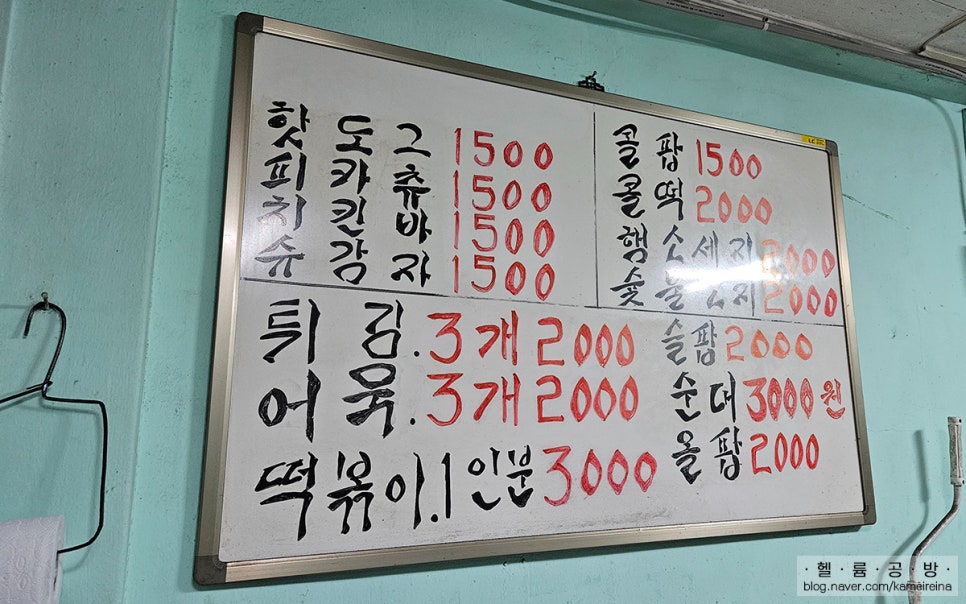 핫 도 그 1500
피 카 츄 1500
치 킨 바 1500
슈 감 자 1500
콜 팝 1500
콜 떡 2000
햄 소 세 지 2000
2000
튀 김 . 3개 2000
어 묵 . 3개 2000
떡볶이. 1인분 3000
슬팝 2000
순대 3000원
올팝 2000
· 헬 · 륨 · 공 · 방 ·
blog.naver.com/kameireina